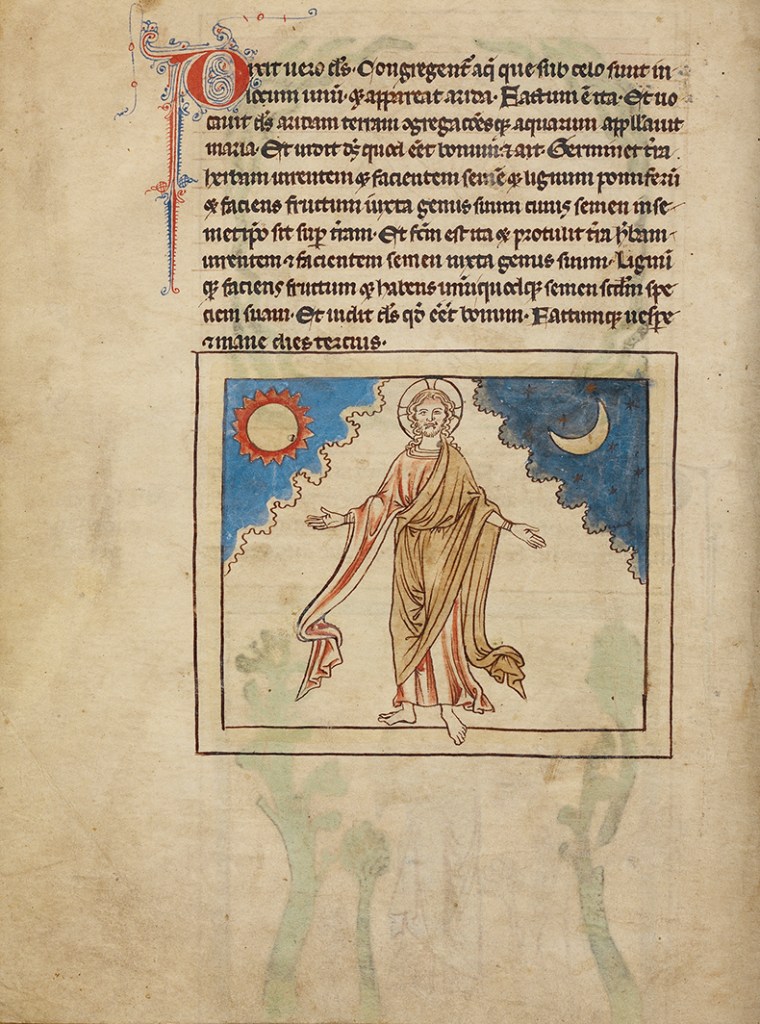 Dixit uero ds̄. Congregent᷑ aq̄ que sub celo sunt in
locum unū. ⁊ appareat arida. Factum ē ita. Et uo
cauit ds̄ aridam terram ɔgregac̄ōesq; aquarum appllauit
maria. Et uidit ds̄ quod eēt bonum ⁊ ait. Germinet tr̄a
herbam uirentem ⁊ facientem semen ⁊ lignum pomiferū
⁊ faciens fructum iuxta genus suum cuius semen in se
metip̄o sit sup̄ tr̄am. Et fc̄m est ita ⁊ protulit tr̄a hr̄bam
uirentem ⁊ facientem semen iuxta genus suum. Lignū
q; faciens fructum ⁊ habens unūquodq; semen scd̄m spe
ciem suam. Et uidit ds̄ qd̄ eēt bonum. Factumq; uespe
⁊ mane dies tercius.